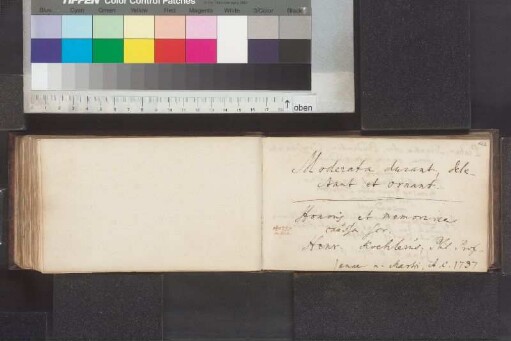 TIFFEN Color Control Patches
Blue Cyan Green Yellow Red Magenta White 3/Color Black
oben
Moderata durant, dele-
ctant et ornant.
Honoris et memoriae
caussa scr.
Henr. Koehlerus, Phil. Prof.
Jenae Martii, A. C. 1737